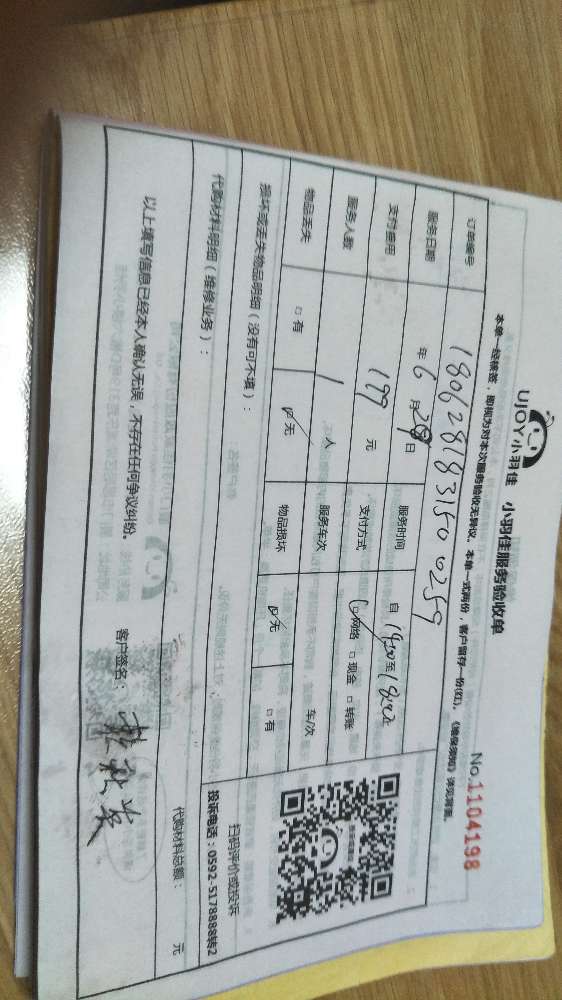 UJOY小羽佳 小羽佳服务验收单
No.1104198
本单一经核签，即视为对本次服务验收无异议。本单一式两份，客户留存一份(红)。《维保须知》详见背面。
订单编号 180628183150 0259
服务日期 年 6 月 29 日 服务时间 自 14:00 至 18:00
支付费用 199 元 支付方式 ☑网络 □现金 □转账
服务人数 1 人 服务车次 车/次
物品丢失 □有 ☑无 物品损坏 ☑无 □有
损坏或丢失物品明细（没有可不填）：
代购材料明细（维修业务）：
代购材料总额： 元
扫码评价或投诉
投诉电话：0592-5178888转2
以上填写信息已经本人确认无误，不存在任何争议纠纷。
客户签名：